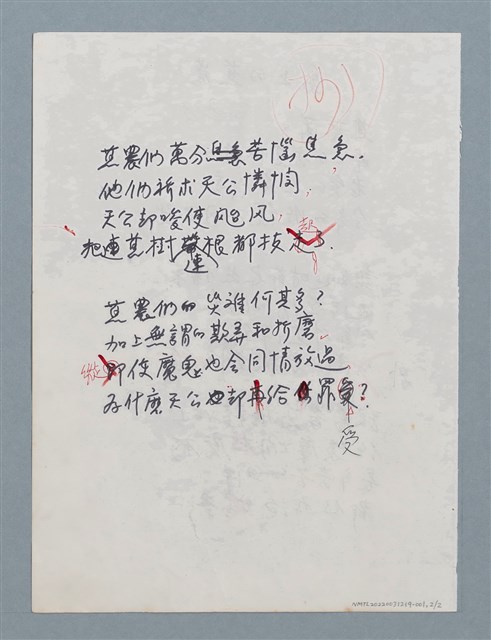 蕉農們萬分苦惱焦急,
他們祈求天公憐憫,
天公卻唆使颱风,
把蕉樹連根都拔起.
蕉農們的災难何其多?
加上無謂的欺弄和折磨,
縱使魔鬼也会同情放過
為什麼天公卻給罪受?
NMTL20220031219-001, 2/2